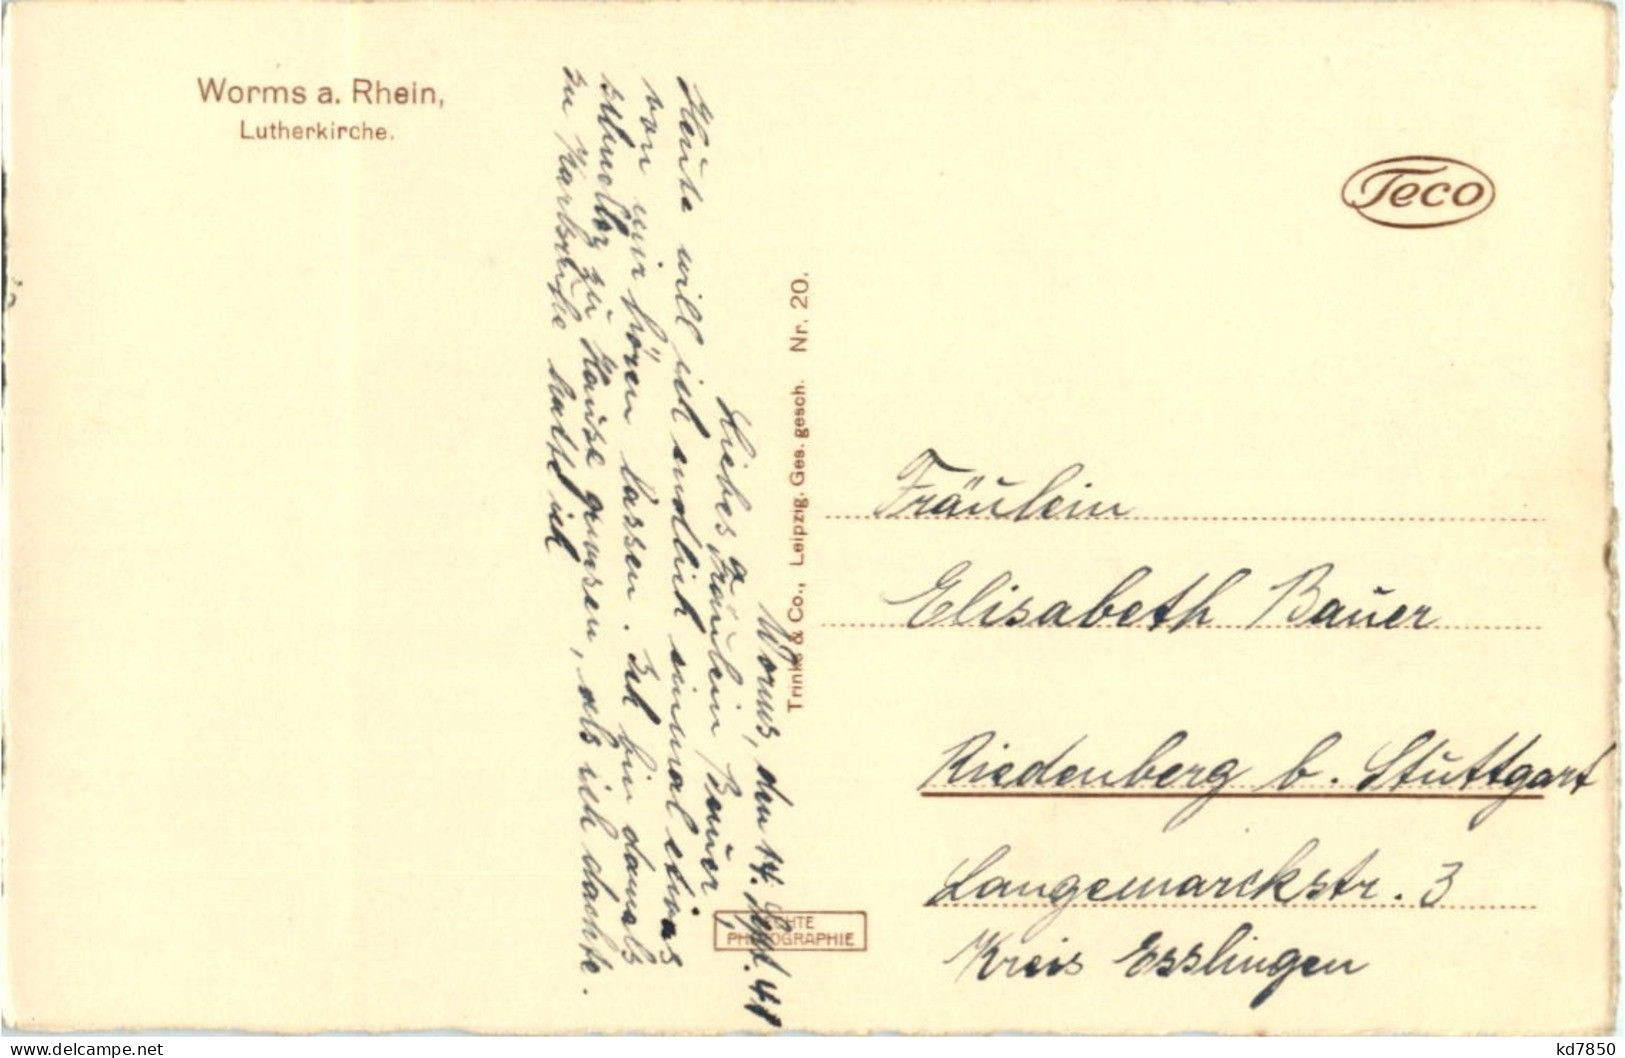 Worms a. Rhein,
Lutherkirche.
Teco
Trinks & Co., Leipzig. Ges. gesch. Nr. 20.
ECHTE
PHOTOGRAPHIE
Worms, den 14. Sept. 41
Liebes Fräulein Bauer!
Heute will ich endlich einmal etwas
von mir hören lassen. Ich bin damals
schneller zu Hause gewesen, als ich dachte.
In Karlsruhe hatte ich
Fräulein
Elisabeth Bauer
Riedenberg b. Stuttgart
Langemarckstr. 3
Kreis Esslingen
www.delcampe.net
kd7850